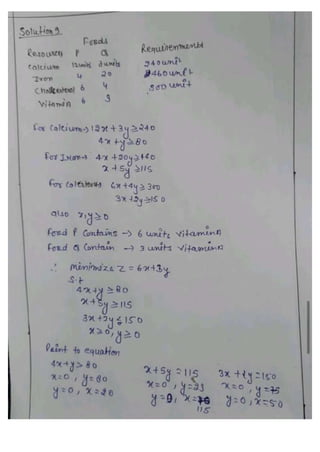 Solution 9
Feeds
Resources P Q Requirements
Calcium 12units 3units 240unit
Iron 4 20 460unit
Cholesterol 6 4 300 unit
Vitamin 6 3
For Calcium → 12x + 3y ≥ 240
4x + y ≥ 80
For Iron → 4x + 20y ≥ 460
x + 5y ≥ 115
For 6x + 4y ≥ 300
3x + 2y ≥ 150
also x, y ≥ 0
Feed P Contains → 6 units vitamin A
Feed Q Contain → 3 units vitamin A
∴ minimize Z = 6x + 3y
S.t
4x + y ≥ 80
x + 5y ≥ 115
3x + 2y ≤ 150
x ≥ 0, y ≥ 0
Point to equation
4x + y ≥ 80 x + 5y = 115 3x + 2y = 150
x = 0, y = 80 x = 0, y = 23 x = 0, y = 75
y = 0, x = 20 y = 0, x = 115 y = 0, x = 50